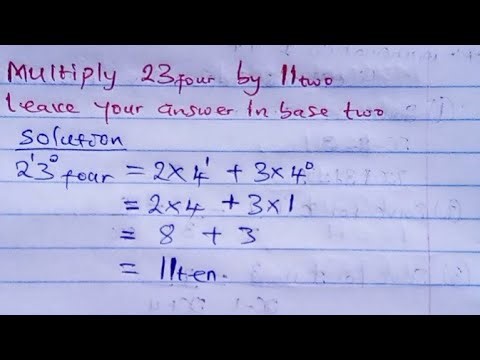 Multiply 23four by 11two
Leave your answer in base two
Solution
2¹3⁰ four = 2×4¹ + 3×4⁰
= 2×4 + 3×1
= 8 + 3
= 11ten.